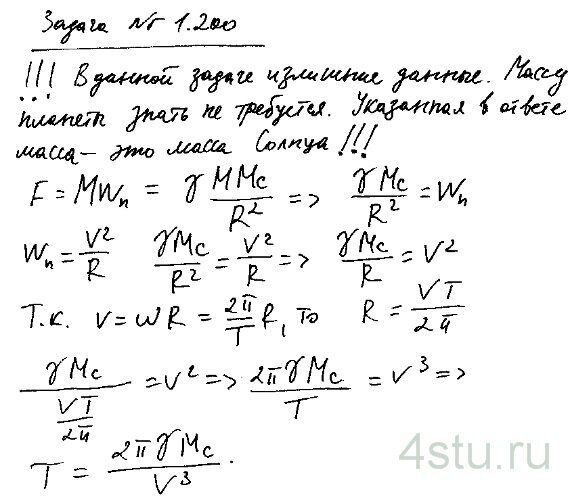 Задача № 1.200
!!! В данной задаче излишние данные. Массу
планеты знать не требуется. Указанная в ответе
масса – это масса Солнца !!!
F = MWₙ = γ MMc / R² => γMc / R² = Wₙ
Wₙ = V² / R γMc / R² = V² / R => γMc / R = V²
Т.к. V = ωR = 2π / T R, то R = VT / 2π
γMc / (VT / 2π) = V² => 2πγMc / T = V³ =>
T = 2πγMc / V³.
4stu.ru